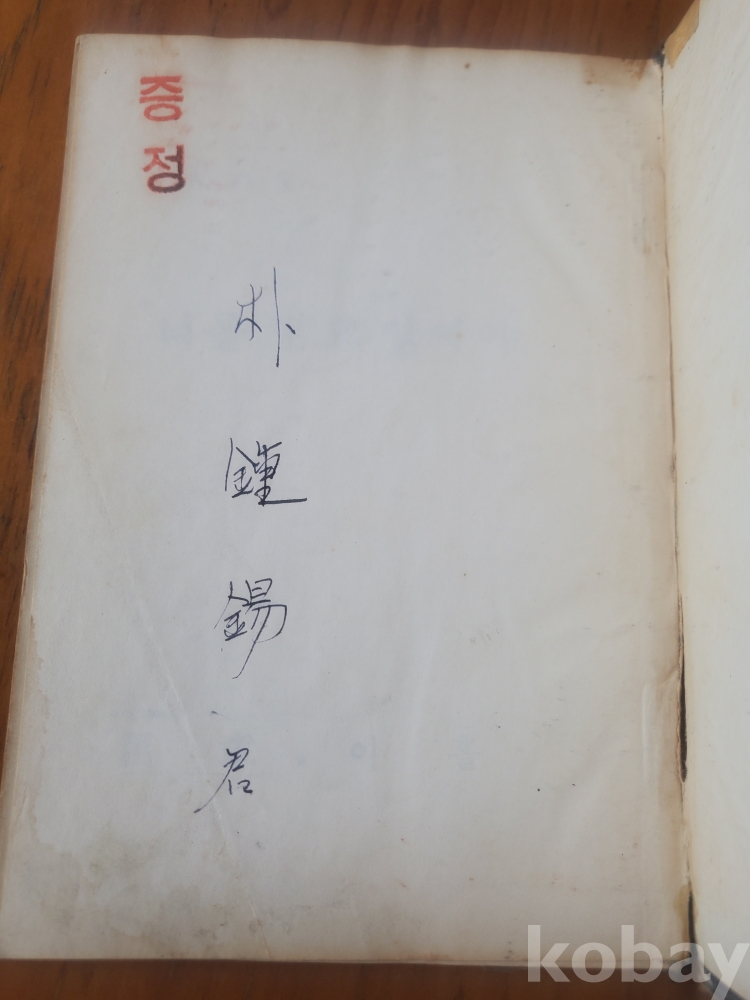 증정
朴鍾錫君
kobay